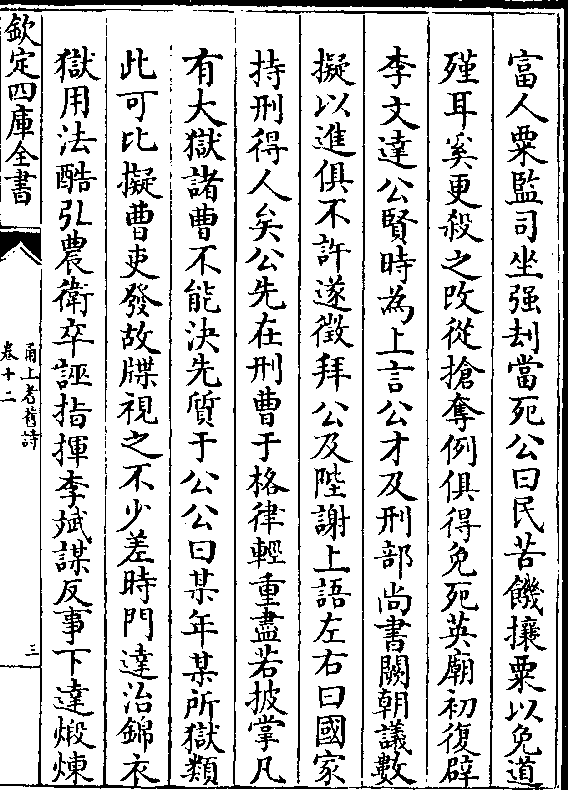 富人粟監司坐强刦當死公曰民苦饑攘粟以免道
殣耳奚更殺之改從搶奪例俱得免死英廟初復辟
李文達公賢時為上言公才及刑部尚書闕朝議數
擬以進俱不許遂徵拜公及陛謝上語左右曰國家
持刑得人矣公先在刑曹于格律輕重盡若披掌凡
有大獄諸曹不能決先質于公公曰某年某所獄類
此可比擬曹吏發故牒視之不少差時門達治錦衣
獄用法酷引農衛卒誣指揮李斌謀反事下達煅煉
欽定四庫全書
甬上耆舊詩
卷十二
三